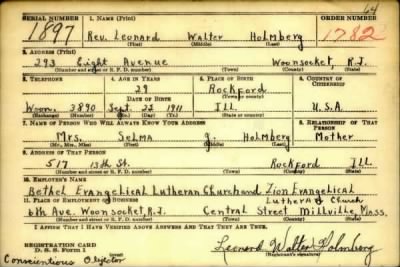 64
SERIAL NUMBER 1. NAME (Print) ORDER NUMBER
1897 Rev. Leonard Walter Holmberg 1782
(First) (Middle) (Last)
2. ADDRESS (Print)
293 Eight Avenue Woonsocket, R.I.
(Number and street or R. F. D. number) (Town) (County) (State)
3. TELEPHONE 4. AGE IN YEARS 5. PLACE OF BIRTH 6. COUNTRY OF CITIZENSHIP
29 Rockford
DATE OF BIRTH (Town or county)
Woon. 3890 Sept. 22 1911 Ill. U.S.A.
(Exchange) (Number) (Mo.) (Day) (Yr.) (State or country)
7. NAME OF PERSON WHO WILL ALWAYS KNOW YOUR ADDRESS 8. RELATIONSHIP OF THAT PERSON
Mrs. Selma J. Holmberg Mother
(Mr., Mrs., Miss) (First) (Middle) (Last)
9. ADDRESS OF THAT PERSON
517 13th St. Rockford Ill
(Number and street or R. F. D. number) (Town) (County) (State)
10. EMPLOYER'S NAME
Bethel Evangelical Lutheran Church and Zion Evangelical
Lutheran Church
11. PLACE OF EMPLOYMENT OR BUSINESS
6th Ave Woonsocket, R.I. Central Street Millville, Mass.
(Number and street or R. F. D. number) (Town) (County) (State)
I AFFIRM THAT I HAVE VERIFIED ABOVE ANSWERS AND THAT THEY ARE TRUE.
REGISTRATION CARD
D. S. S. Form 1
Leonard Walter Holmberg
(Registrant's signature)
Conscientious Objector